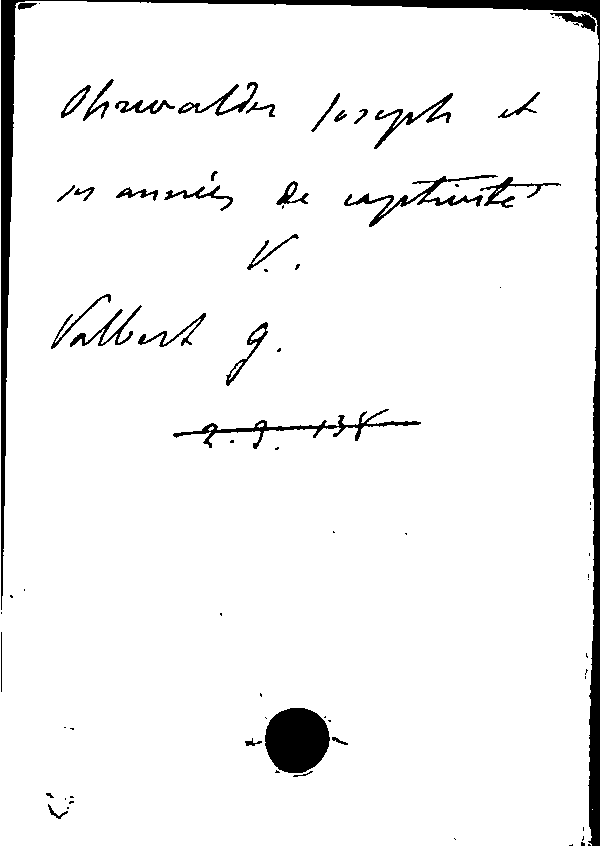 Ohrwalder Joseph et
ses années de captivité
V.
Valbert g.
2.9.138